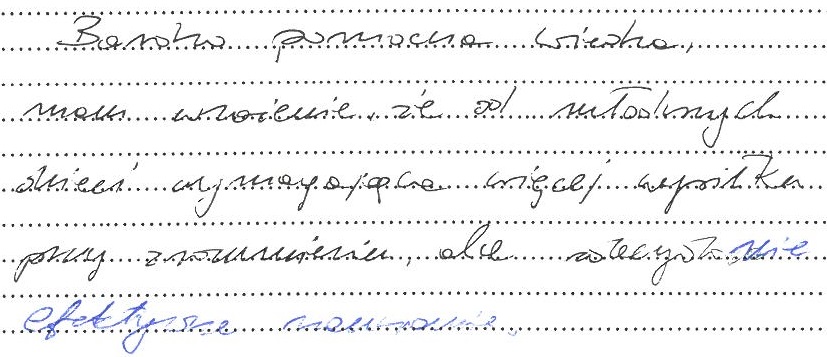 Bardzo pomocna wiedza,
mam wrażenie, że od młodszych
dzieci wymagająca więcej wysiłku
przy zrozumieniu, ale zdecydowanie
efektywne nauczanie.